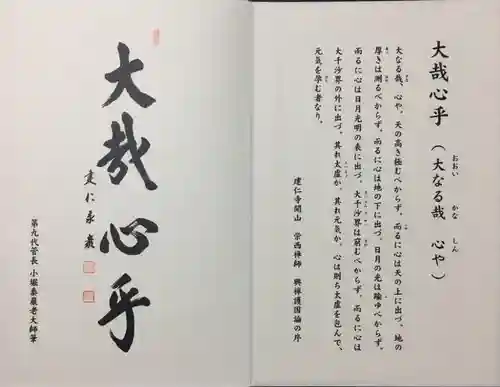 大哉心乎(大なる哉 心や)
おおい かな しん
大なる哉、心や。天の高き極むべからず、而るに心は天の上に出づ。地の
厚きは測るべからず。而るに心は地の下に出づ。日月の光は踰ゆべからず。
而るに心は日月光明の表に出づ。大千沙界は窮むべからず。而るに心は
大千沙界の外に出づ。其れ太虚か、其れ元気か、心は則ち太虚を包んで、
元気を孕む者なり。
建仁寺開山 栄西禅師 興禅護国論の序
大哉心乎
建仁泰巖
第九代管長 小堀泰巖老大師筆